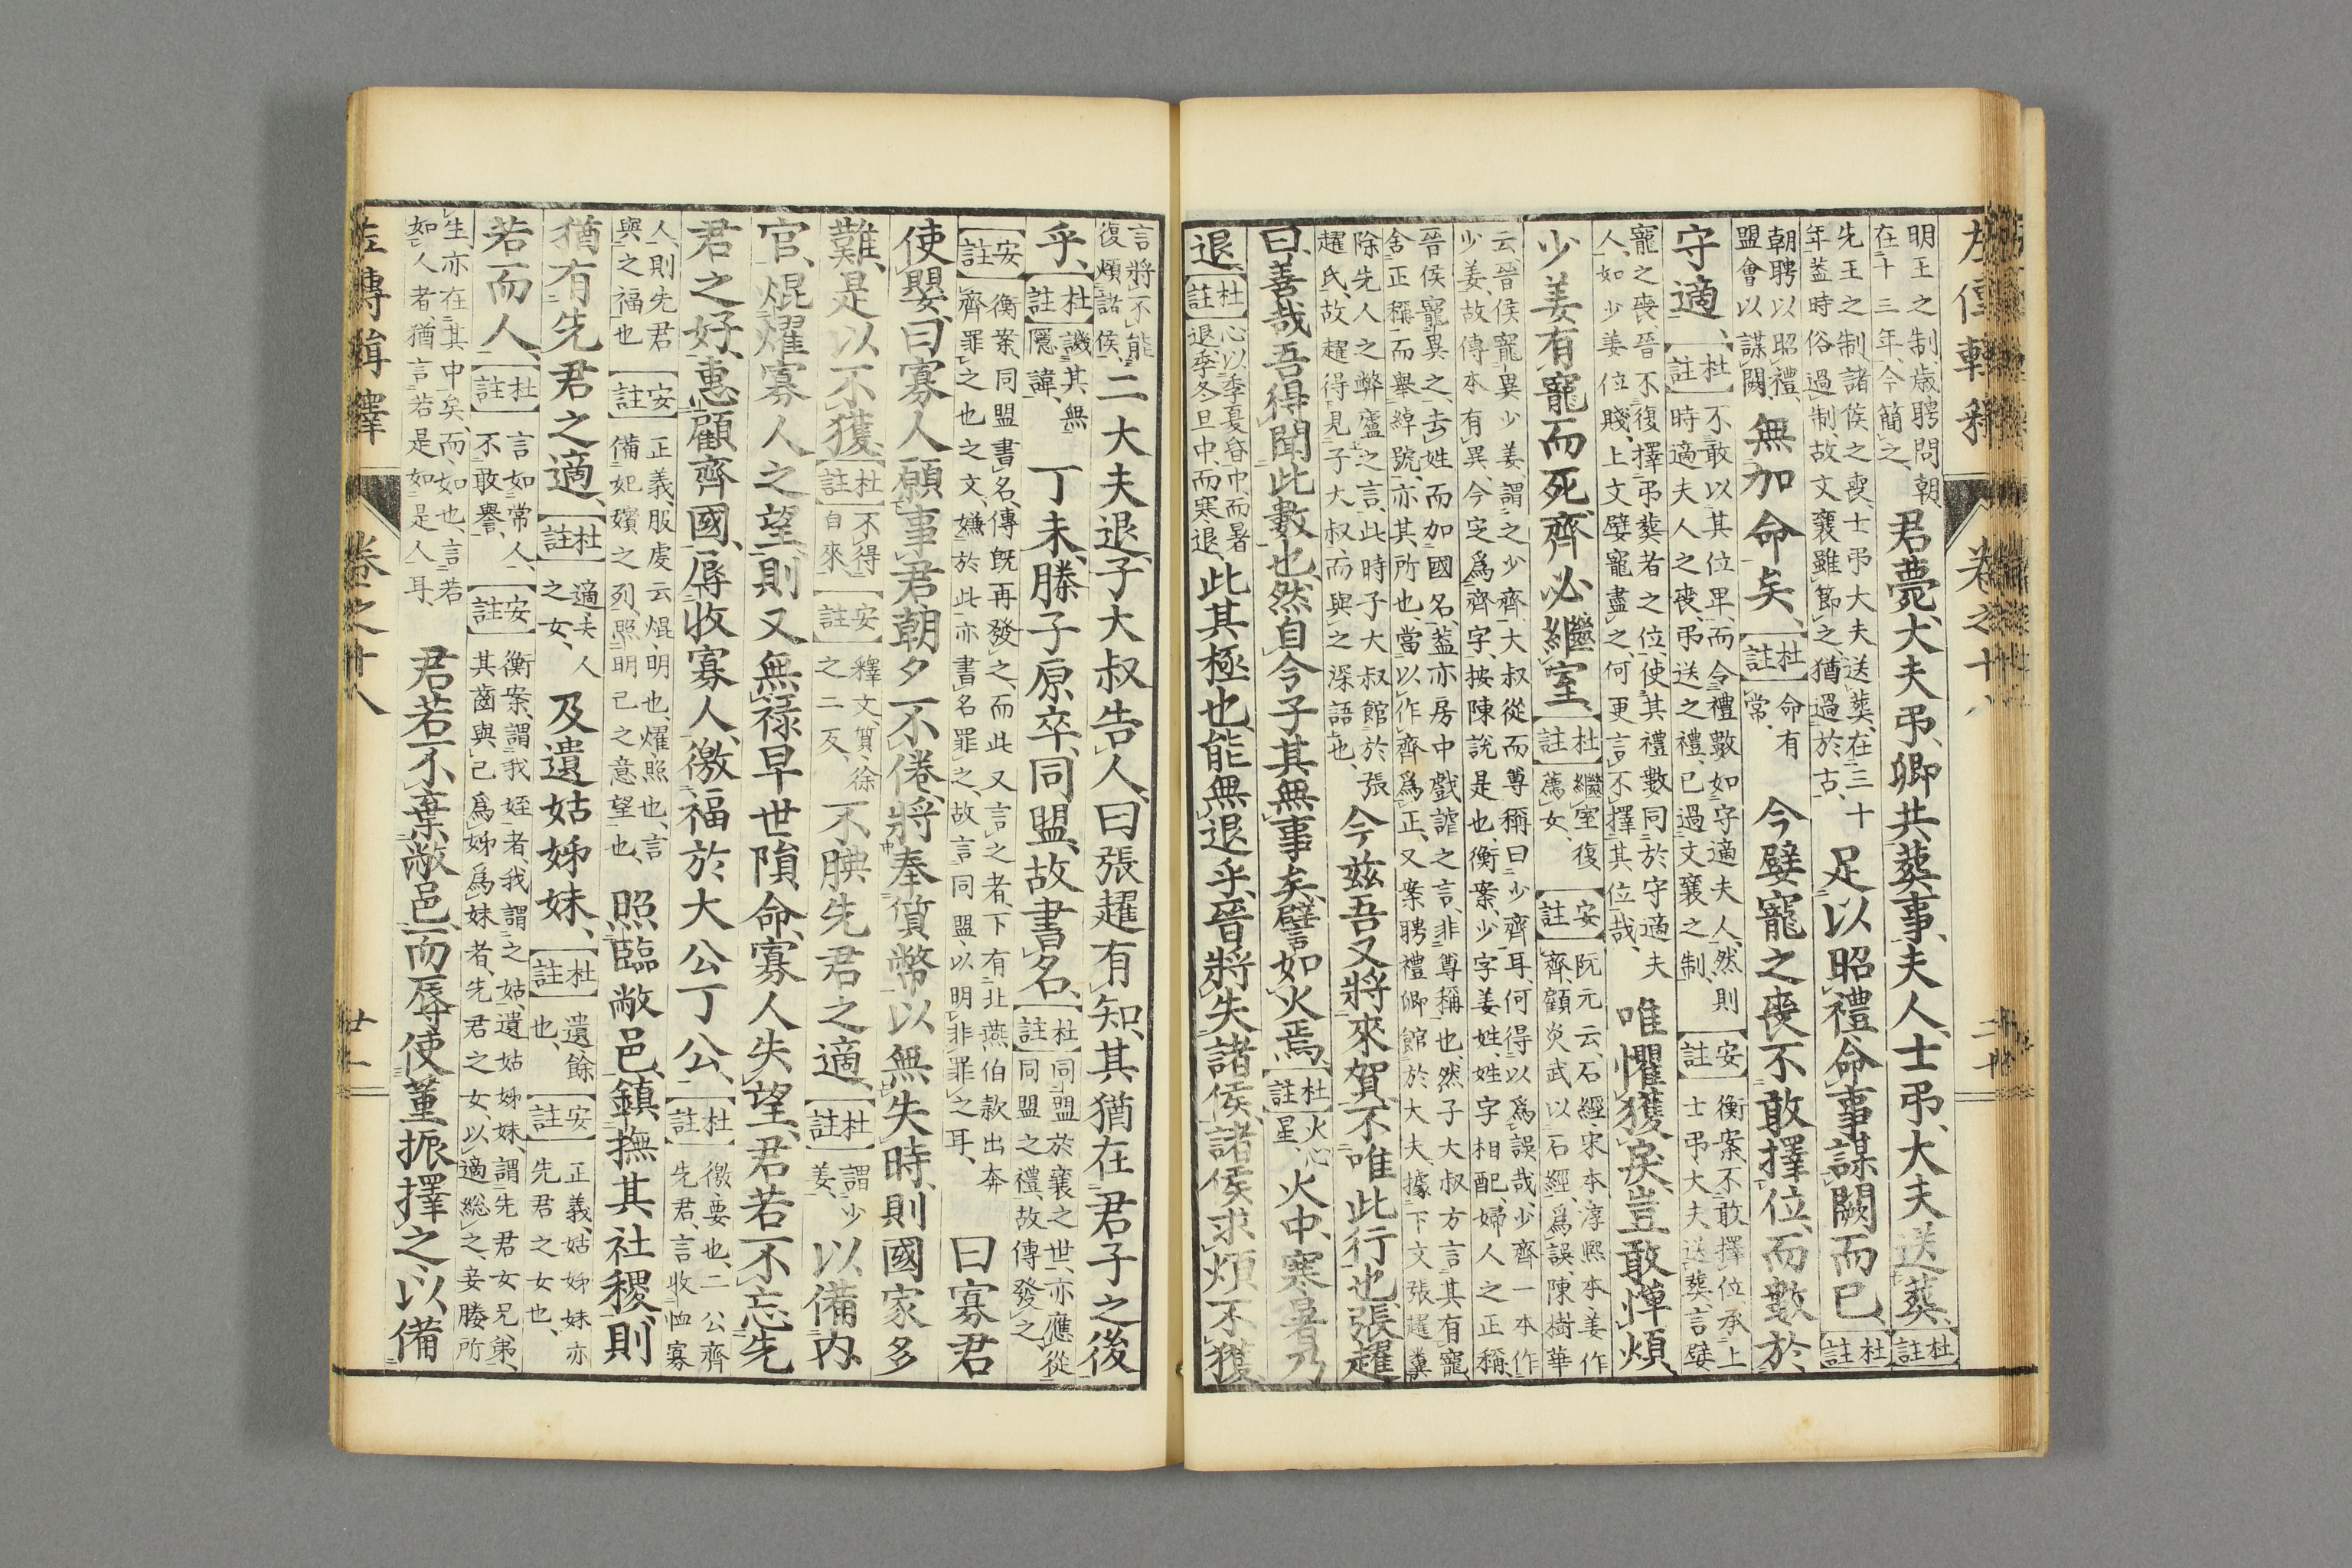 左傳輯釋 卷之十八 二十
明王之制歲聘問朝在十三年今簡之君薨大夫弔卿共葬事夫人士弔大夫送葬【杜註】
先王之制諸侯之喪士弔大夫送葬在三十年蓋時俗過制故文襄雖節之猶過於古足以昭禮命事謀闕而已【杜註】
朝聘以昭禮盟會以謀闕無加命矣【杜註】命有常今嬖寵之喪不敢擇位而數於
守適【杜註】不敢以其位卑而令禮數如守適夫人然則時適夫人之喪弔送之禮已過文襄之制【安註】衡案不敢擇位承上士弔大夫送葬言嬖
寵之喪晉不復擇弔葬者之位使其禮數同於守適夫人如少姜位賤上文嬖寵盡之何更言不擇其位哉唯懼獲戾豈敢憚煩
少姜有寵而死齊必繼室【杜註】繼室復薦女【安註】阮元云石經宋本淳熙本姜作齊顧炎武以石經爲誤陳樹華
云晉侯寵異少姜謂之少齊大叔從而尊稱曰少齊耳何得以爲誤哉少齊一本作少姜故傳本有異今定爲齊字按陳說是也衡案少字姜姓姓字相配婦人之正稱
晉侯寵異之去姓而加國名蓋亦房中戲謔之言非尊稱也然子大叔方言其有寵舍正稱而舉綽號亦其所也當以作齊爲正又案聘禮卿館於大夫據下文張趯糞
除先人之弊廬之言此時子大叔館於張趯氏故趯得見子大叔而與之深語也今茲吾又將來賀不唯此行也張趯
曰善哉吾得聞此數也然自今子其無事矣譬如火焉【杜註】火心星火中寒暑乃
退【杜註】心以季夏昏中而暑退季冬旦中而寒退此其極也能無退乎晉將失諸侯諸侯求煩不獲
言將不能復煩諸侯二大夫退子大叔告人曰張趯有知其猶在君子之後
乎【杜註】譏其無隱諱丁未滕子原卒同盟故書名【杜註】同盟於襄之世亦應從同盟之禮故傳發之
【安註】衡案同盟書名傳既再發之而此又言之者下有北燕伯款出奔齊罪之也之文嫌於此亦書名罪之故言同盟以明非罪之耳曰寡君
使嬰曰寡人願事君朝夕不倦將奉質幣以無失時則國家多
難是以不獲【杜註】不得自來【安註】釋文質徐之二反不腆先君之適【杜註】謂少姜以備內
官焜燿寡人之望則又無祿早世隕命寡人失望君若不忘先
君之好惠顧齊國辱收寡人徼福於大公丁公【杜註】徼要也二公齊先君言收恤寡
人則先君與之福也【安註】正義服虔云焜明也燿照也言備妃嬪之列照明己之意望也照臨敝邑鎮撫其社稷則
猶有先君之適【杜註】適夫人之女及遺姑姊妹【杜註】遺餘也【安註】正義姑姊妹亦先君之女也
若而人【杜註】言如常人不敢譽【安註】衡案謂我姪者我謂之姑遺姑姊妹謂先君女兄弟其齒與己爲姊爲妹者先君之女以適總之妾媵所
生亦在其中矣而如也言若如人者猶言若是如是人耳君若不棄敝邑而辱使董振擇之以備
左傳輯釋 卷之十八 廿一